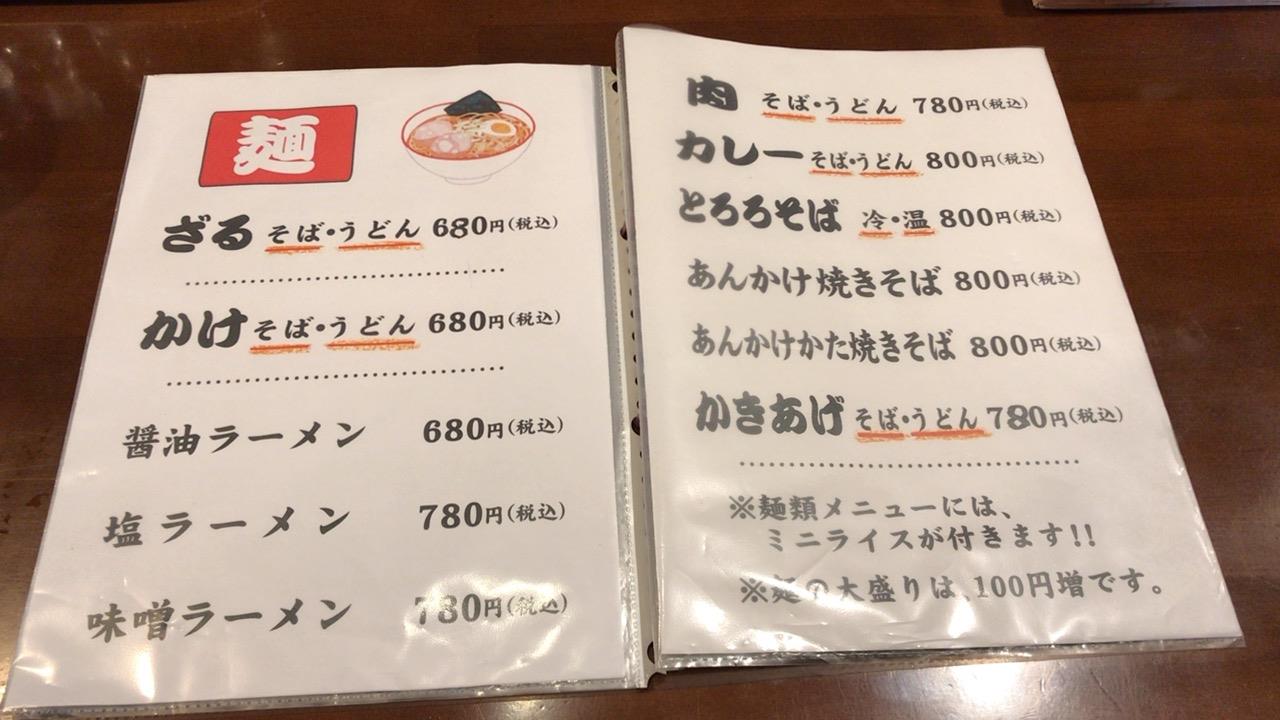 麺
ざる そば・うどん 680円(税込)
かけ そば・うどん 680円(税込)
醤油ラーメン 680円(税込)
塩ラーメン 780円(税込)
味噌ラーメン 780円(税込)
肉 そば・うどん 780円(税込)
カレー そば・うどん 800円(税込)
とろろそば 冷・温 800円(税込)
あんかけ焼きそば 800円(税込)
あんかけかた焼きそば 800円(税込)
かきあげ そば・うどん 780円(税込)
※麺類メニューには、
ミニライスが付きます!!
※麺の大盛りは、100円増です。